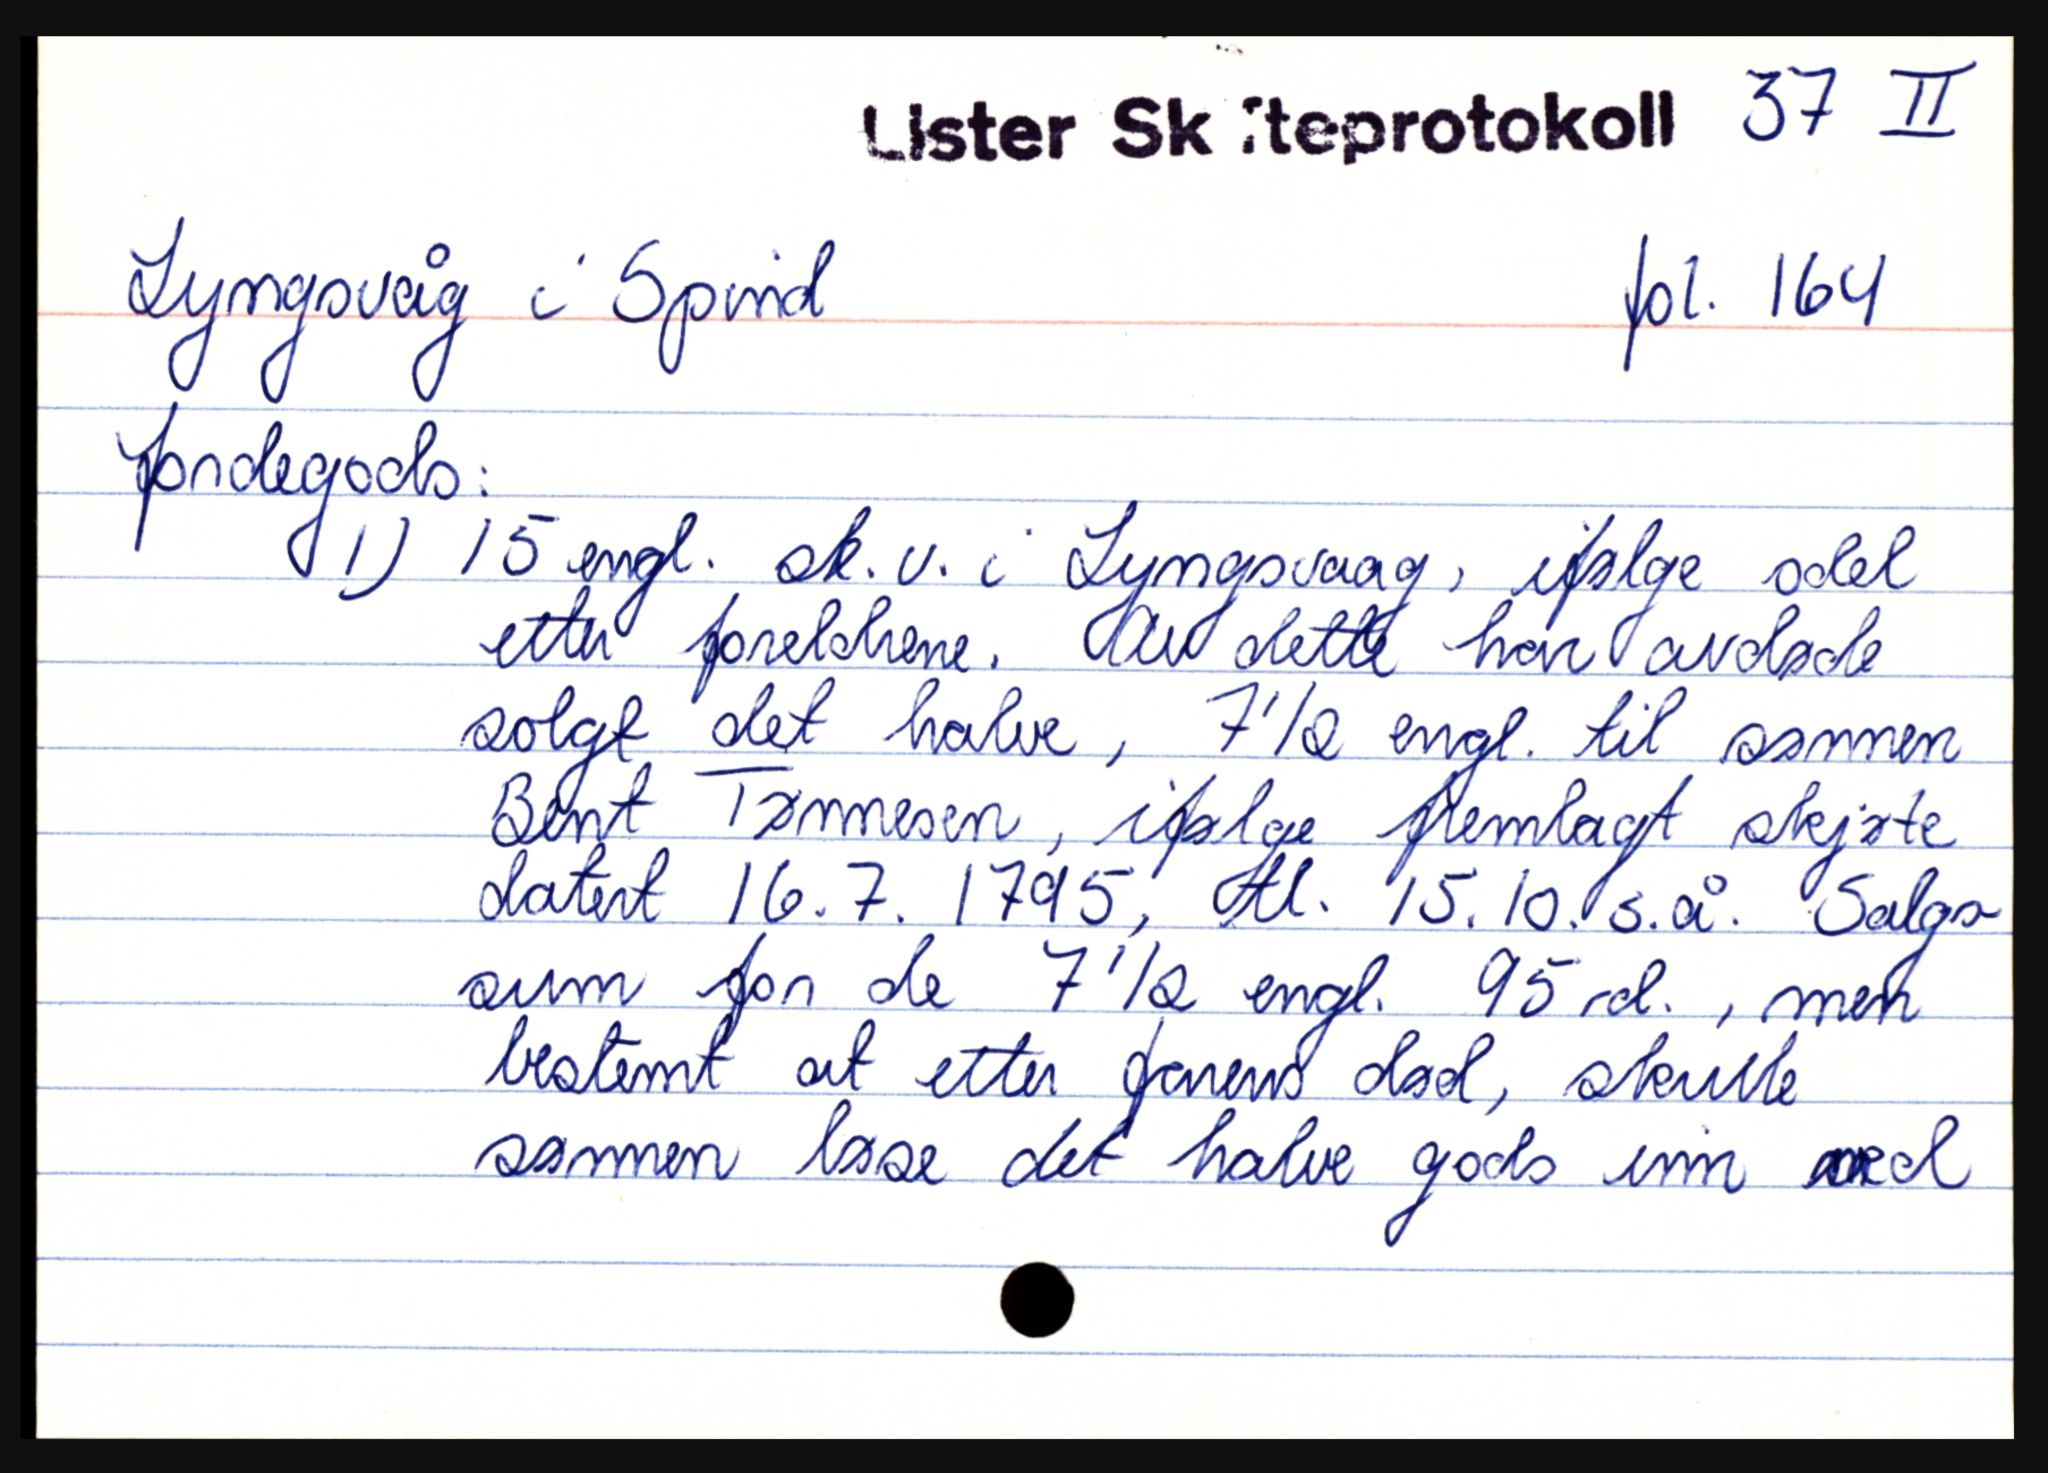 Lister Skifteprotokoll 37 II
Lyngsvåg i Spind fol. 164
Jordegods:
1) 15 engl. sk. v. i Lyngsvaag, ifølge odel
etter foreldrene. Av dette har avdøde
solgt det halve, 7 1/2 engl. til sønnen
Bent Tønnesen, ifølge fremlagt skjøte
datert 16.7.1795, tl. 15.10. s.å. Salgs-
sum for de 7 1/2 engl. 95 rd., men
bestemt at etter farens død, skulle
sønnen løse det halve gods inn med